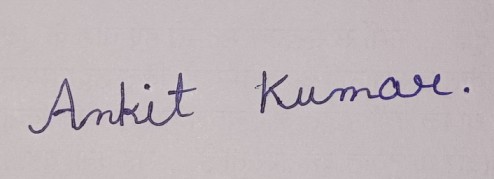 Ankit Kumar.